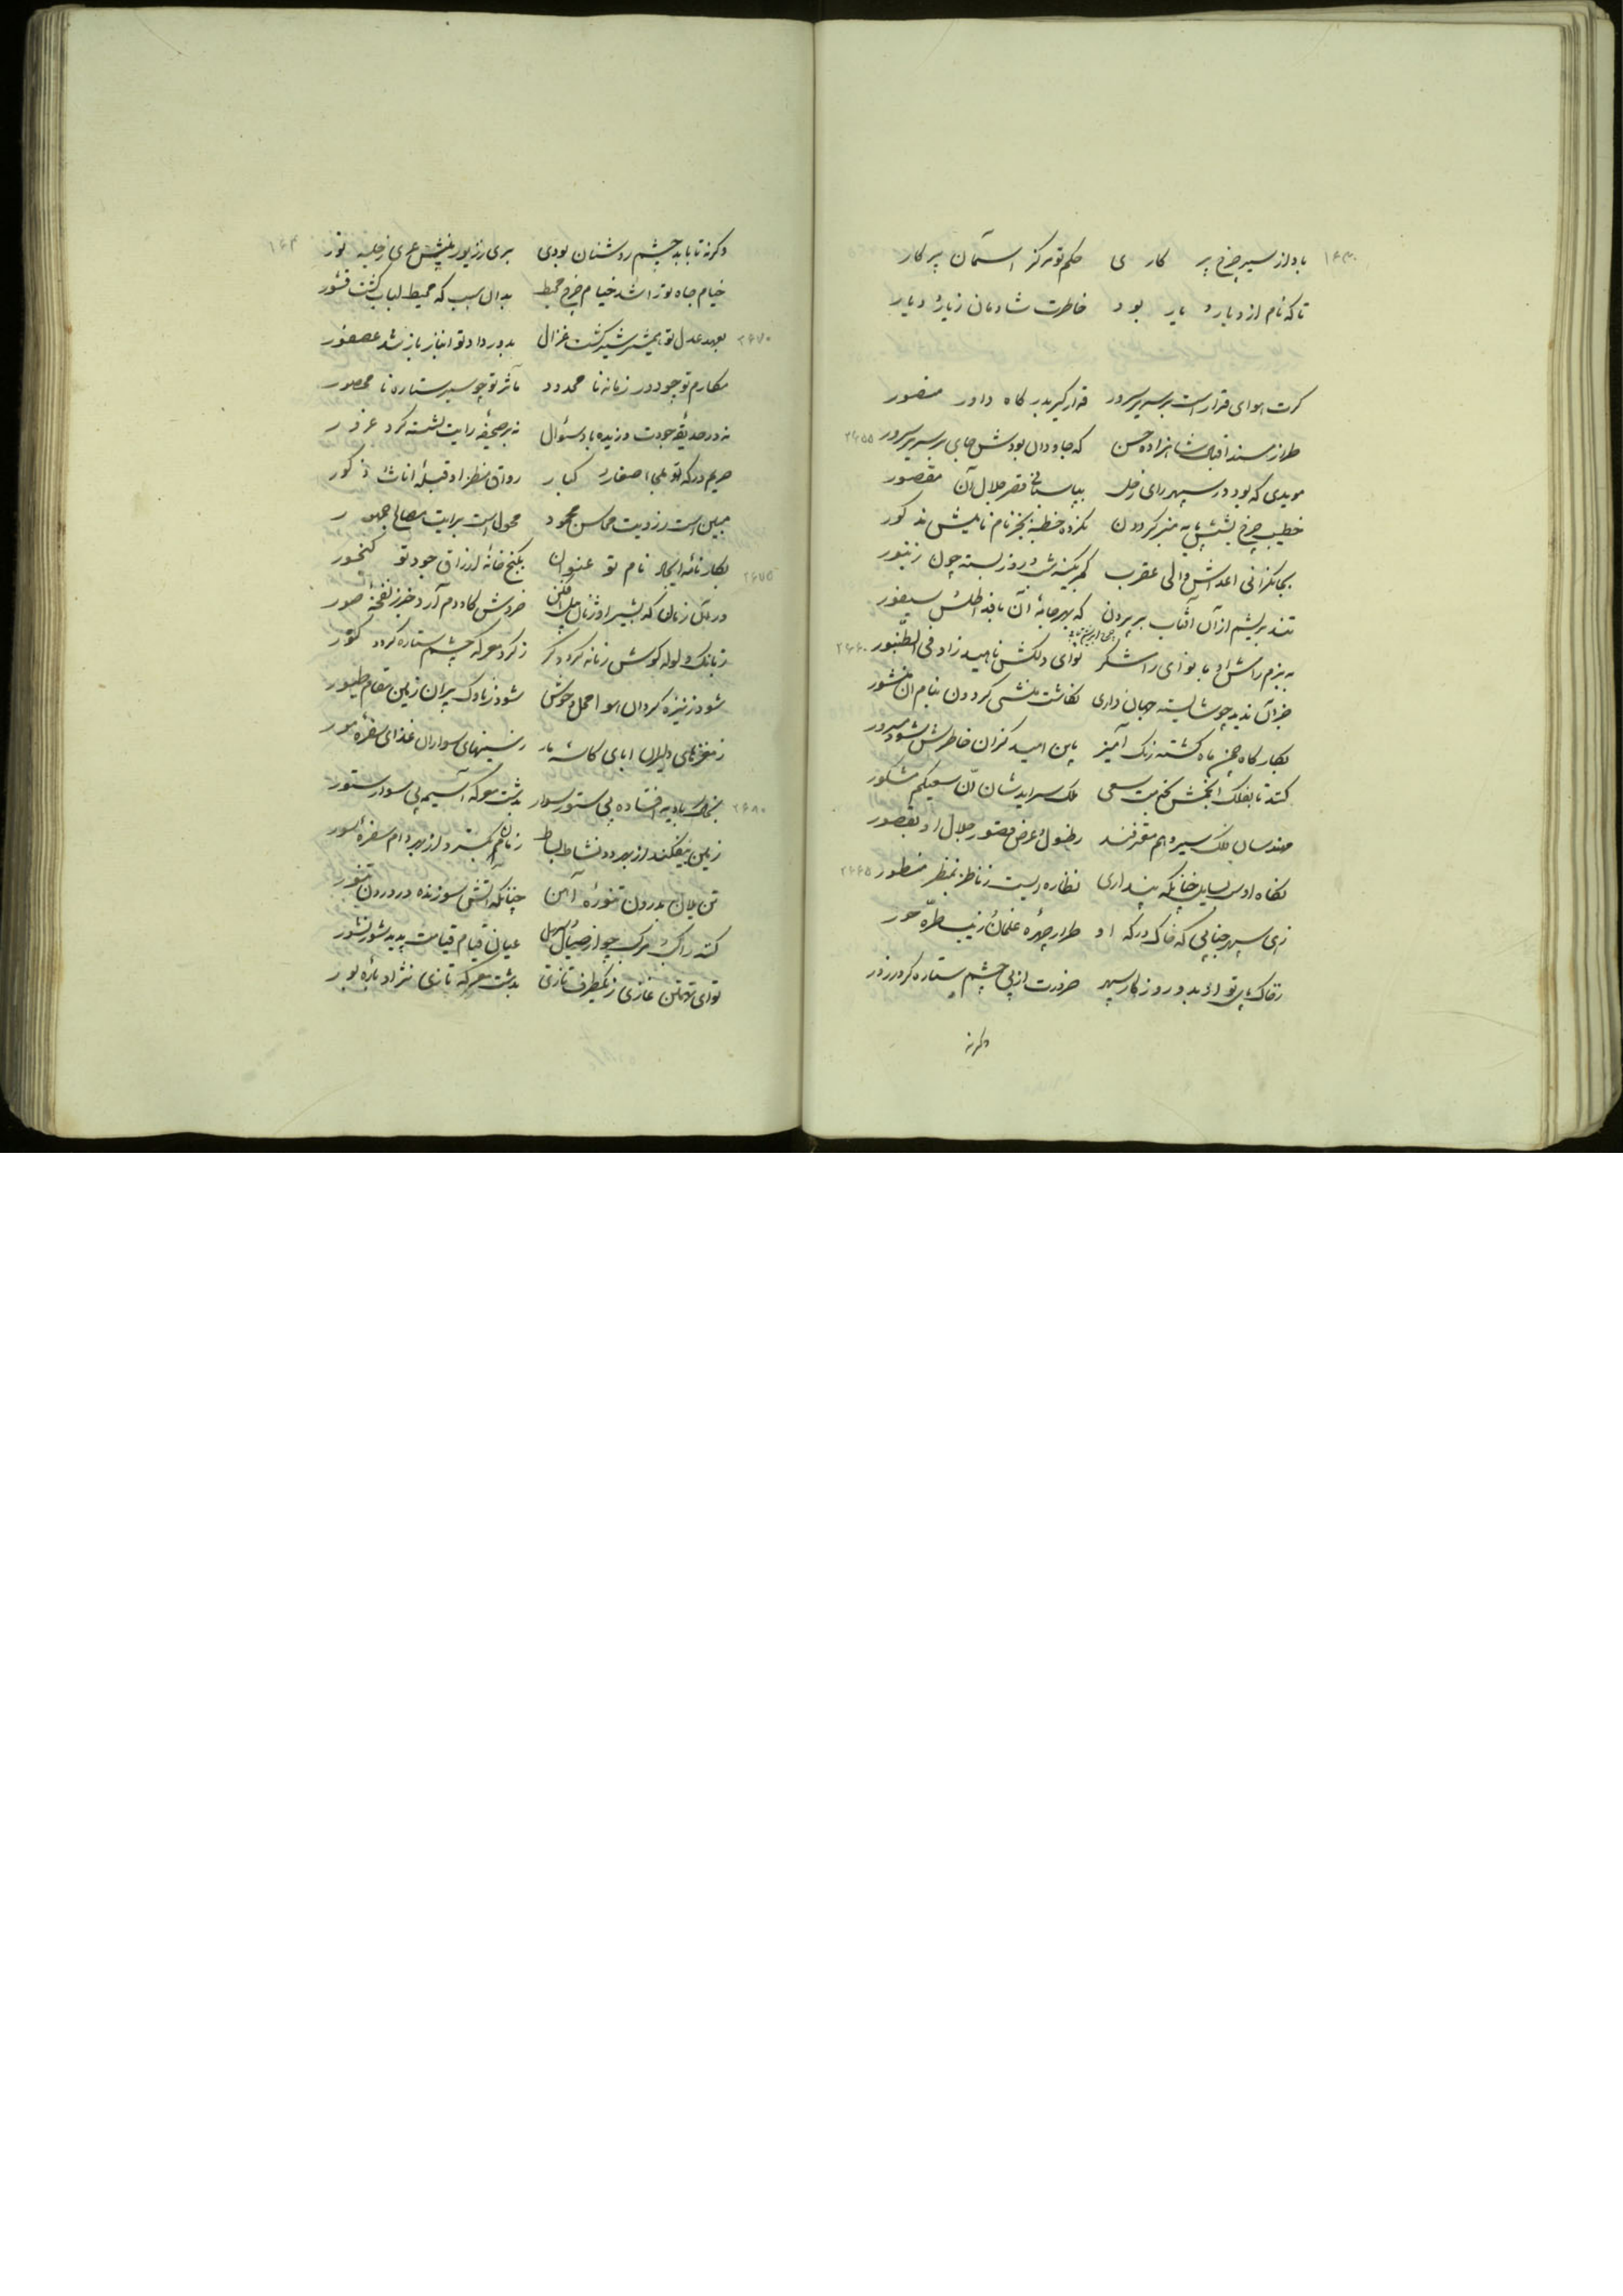 باد از سیر چرخ پر کاری حکم تو مرکز آسمان پرکار
تا که نام از دیار و یار بود خاطرت شادمان ز یار و دیار
گرت هوای قرار است بر سریر سرور قرار گیر بدرگاه داور منصور
طراز مسند اقبال شاهزاده حسن که جاودان بودش جای بر سریر سرور ۲۶۵۵
مویدی که بود در سپهر رای زحل بپاسبانی قصر جلال آن مقصور
خطیب چرخ بشش پایه منبر گردون نکرده خطبه بجز نام نامیش مذکور
بجانگزائی اعداش والی عقرب کمر بکینه شب و روز بسته چون زنبور
تند بریشم از آن آفتاب بر پرون که بهر جامه آن بافد اطلس سیفور
به بزم رامش او با نوای رامشگر نوای دلکش ناهید زاد فی الطنبور ۲۶۶۰
جز آن ندید چو شایسته جهانداری نگاشت منشی گردون بنام آن منشور
بکارگاه چمن باد گشته رنگ آمیز باین امید کزان خاطرش شود مسرور
کنند تا بفلک انجمش بخدمت سعی ملک سراید شان ان سعیکم مشکور
مهندسان فلک سیر وهم معترفند بطول و عرض قصور جلال او بقصور
نگاه او بس نماید چنانکه پنداری نظاره ایست ز ناظر بمنظر منظور ۲۶۶۵
زهی سپهر جنابی که خاک درگه او طراز چهره غلمان و زیب طره حور
ز خاک پای تو ای بدور روزگار سپهر ضرورت از پی چشم ستاره کرد زرور
وگرنه
۱۶۴
وگرنه تا بابد چشم روشنان بودی بری ز زیور بینش عری ز حلیه نور
خیام جاه تو را شد خیام چرخ محیط بدان سبب که محیط لباب گشت قشور
بعهد عدل تو همشیر شیر گشت غزال بدور داد تو انباز باز شد عصفور ۲۶۷۰
مکارم تو چو دور زمانه نامحدود مآثر تو چو سیر ستاره نامحصور
نه در حدیقه جودت وزیده باد سئوال نه بر صحیفه رایت نشسته گرد غرور
حریم درگه تو ملجأ صغار و کبار رواق منظر او قبله اناث و ذکور
مبین است ز رویت محاسن محمود محول است برایت مصالح جمهور
بکارنامه ایجاد نام تو عنوان بگنج خانه ارزاق جود تو گنجور ۲۶۷۵
در آن زمان که بشیر اوژنان پیل افکن خروش گاو دم آرد خبر ز نفخه صور
ز بانگ ولوله گوش زمانه گردد کر ز گرد معرکه چشم ستاره گردد کور
شود ز نیزه گردان هوا محل وحوش شود ز ناوک پران زمین مقام طیور
ز مغزهای دلیران ابای کاسه مار ز سینهای سواران غذای سفره مور
بخاک بادیه افتاده بی ستور سوار بدشت معرکه آسیمه بی سوار ستور ۲۶۸۰
زمین بیفکند از بهر دد نشاط بساط زمانه گسترد از بهر دام سفره سور
تن یلان بدرون تنوره آهن چنانکه آتش سوزنده در درون تنور
کند راکب و مرکب چو از صیال و صهیل عیان قیام قیامت پدید شور نشور
تو ای تهمتن غازی ز یکطرف تازی بدشت معرکه تازی نژاد باره بور